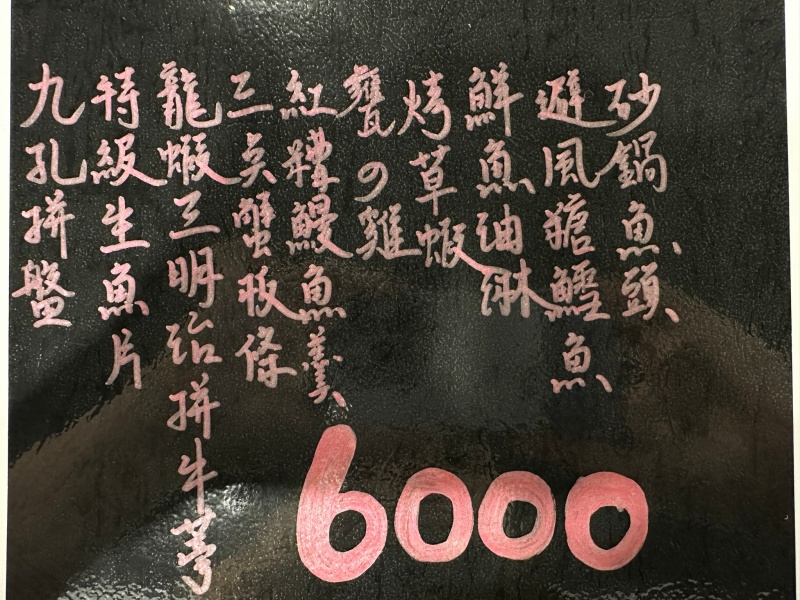 砂鍋魚頭、
避風塘鱈魚、
鮮魚油淋
烤草蝦
甕の雞
紅糟鰻魚羹、
三点蟹粄條
龍蝦三明治拼牛蒡
特級生魚片
九孔拼盤
6000